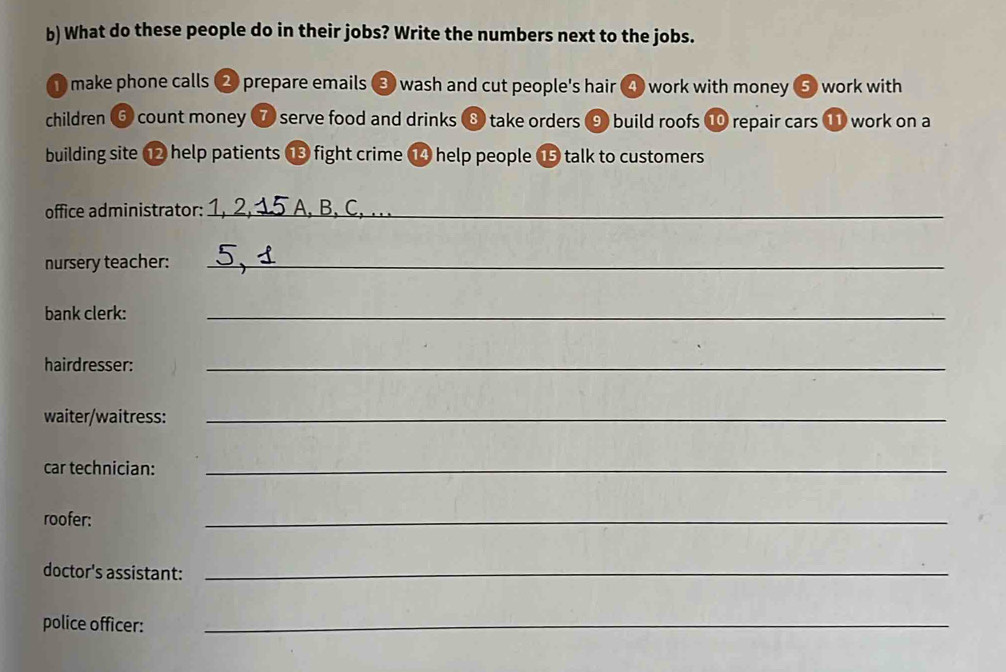 b) What do these people do in their jobs? Write the numbers next to the jobs.
1 make phone calls 2 prepare emails 3 wash and cut people's hair 4 work with money 5 work with
children 6 count money 7 serve food and drinks 8 take orders 9 build roofs 10 repair cars 11 work on a
building site 12 help patients 13 fight crime 14 help people 15 talk to customers
office administrator: 1, 2, 15 A, B, C, ...
nursery teacher: 5, 1
bank clerk:
hairdresser:
waiter/waitress:
car technician:
roofer:
doctor's assistant:
police officer: